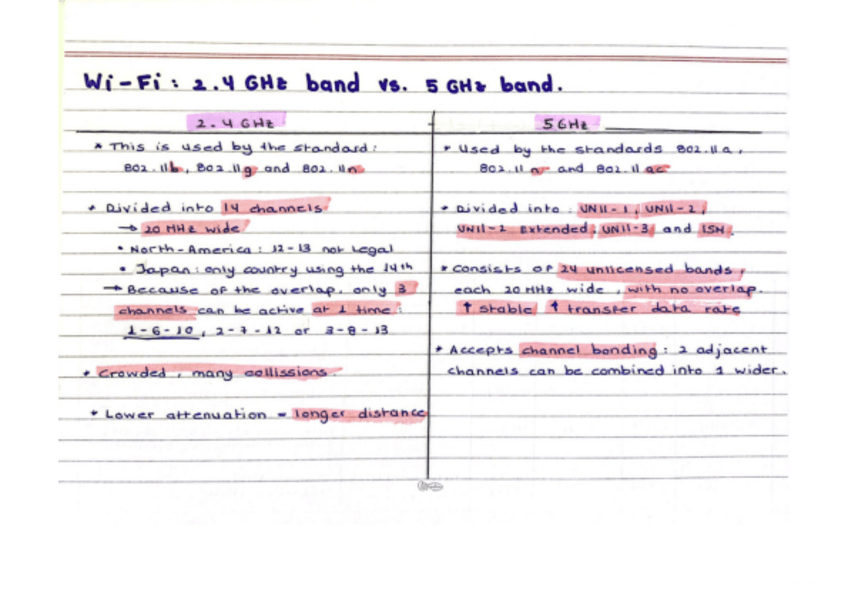 Wi-Fi: 2.4 GHz band vs. 5 GHz band.
2.4 GHz
* This is used by the standard:
802.11b, 802.11g and 802.11n
* Divided into 14 channels
→ 20 MHz wide
• North-America: 12-13 not legal
• Japan: only country using the 14th
→ Because of the overlap, only 3
channels can be active at 1 time:
1-6-10, 2-7-12 or 3-8-13
* Crowded, many collissions.
* Lower attenuation = longer distance
5GHz
* Used by the standards 802.11a,
802.11n and 802.11ac
* Divided into: UNII-1, UNII-2,
UNII-2 Extended, UNII-3 and ISM.
* Consists of 24 unlicensed bands,
each 20 MHz wide, with no overlap.
↑ stable ↑ transfer data rate
* Accepts channel bonding: 2 adjacent
channels can be combined into 1 wider.